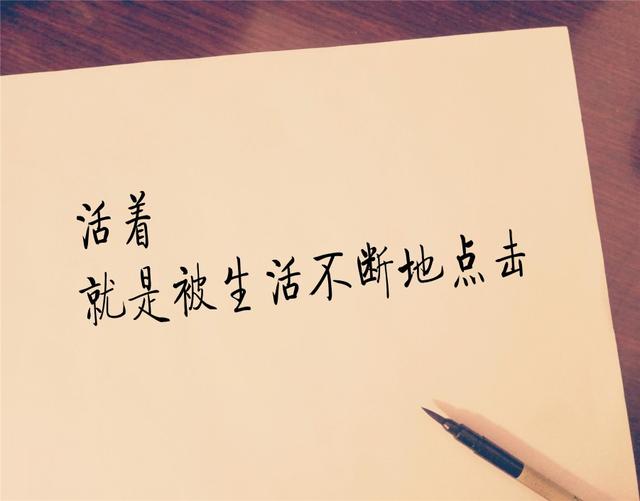 活着
就是被生活不断地点击